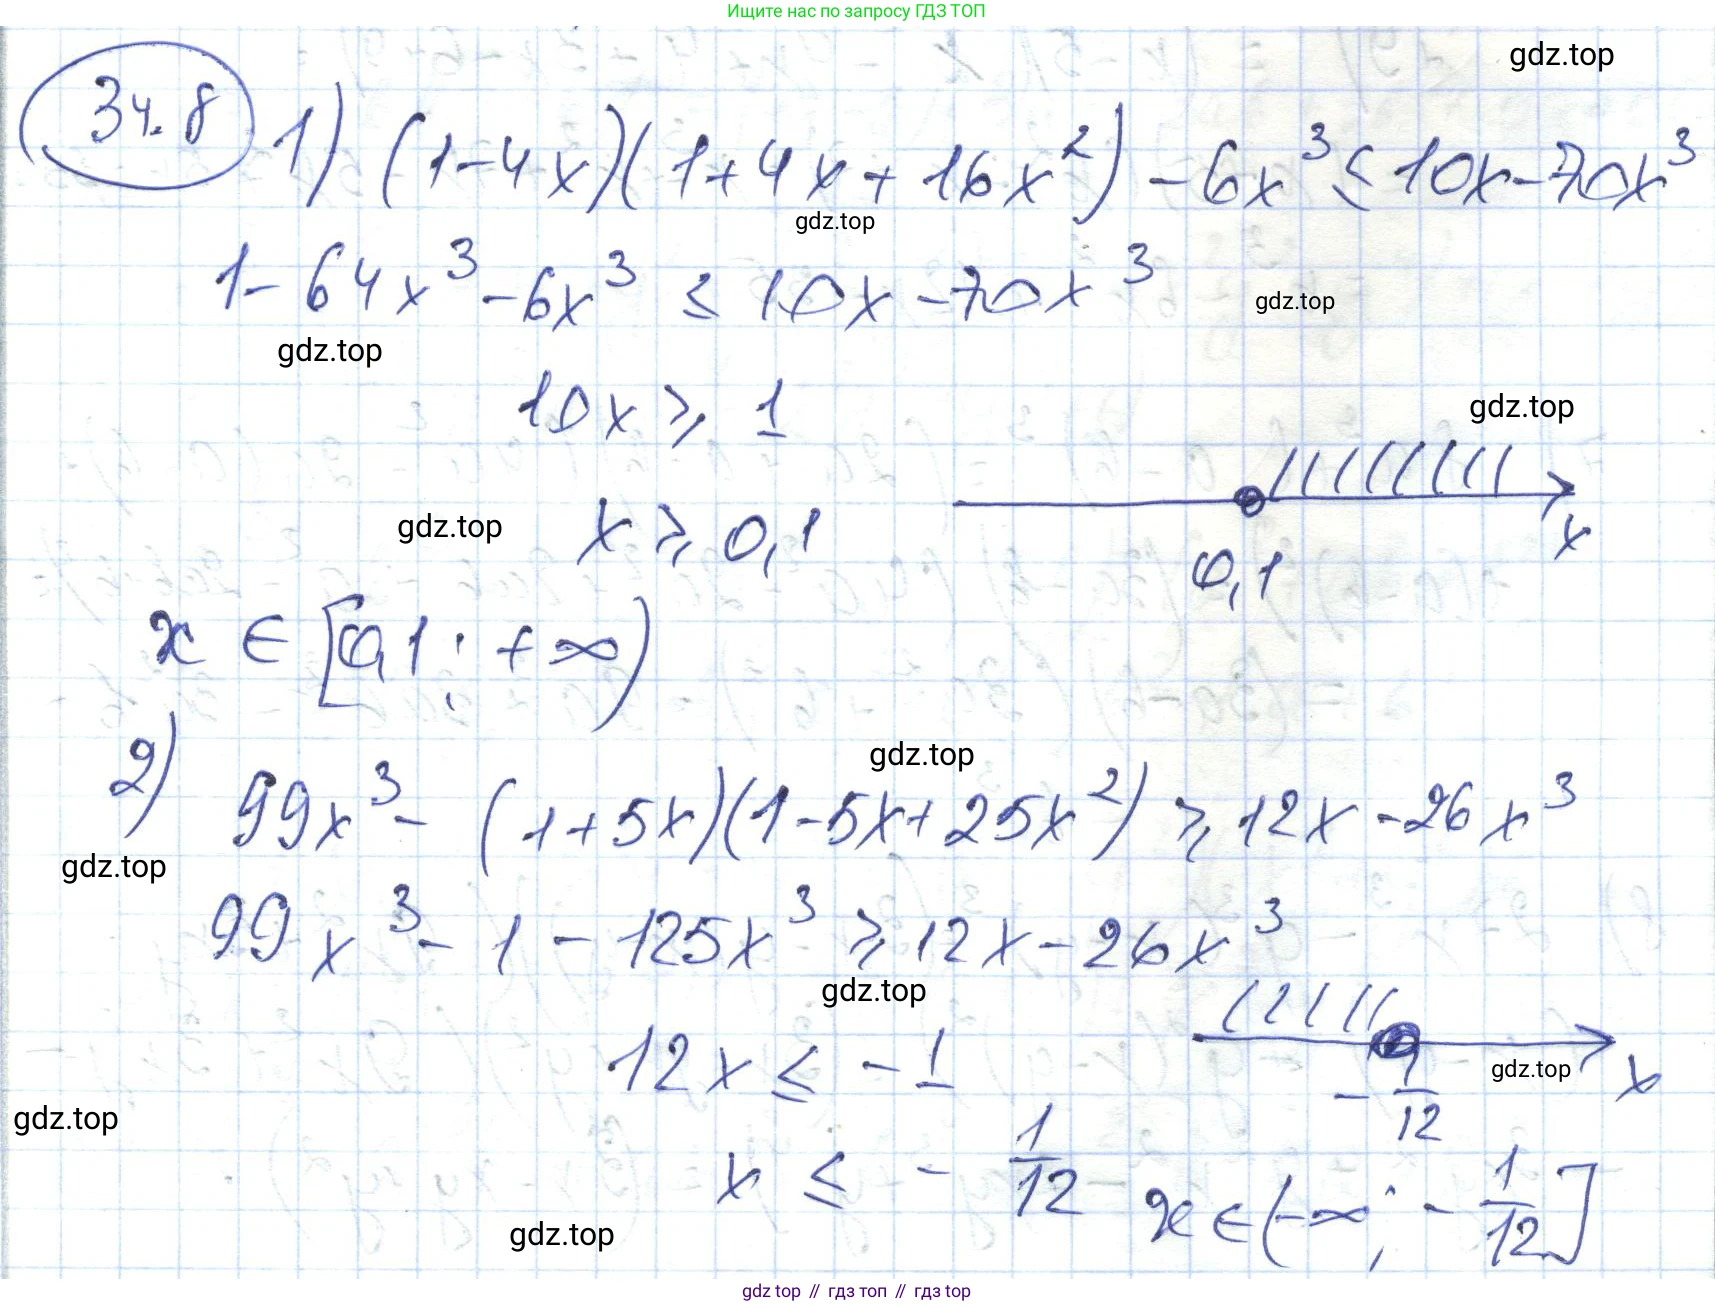 Ищите нас по запросу ГДЗ ТОП
gdz.top
34.8 1) (1-4x)(1+4x+16x²) - 6x³ ≤ 10x - 70x³
gdz.top
1 - 64x³ - 6x³ ≤ 10x - 70x³
gdz.top
gdz.top
10x ≥ 1
gdz.top
gdz.top
x ≥ 0,1
x
0,1
x ∈ [0,1; +∞)
gdz.top
2) 99x³ - (1+5x)(1-5x+25x²) ≥ 12x - 26x³
gdz.top
99x³ - 1 - 125x³ ≥ 12x - 26x³
gdz.top
12x ≤ -1
gdz.top
x
-1/12
gdz.top
x ≤ -1/12
x ∈ (-∞; -1/12]
gdz.top
gdz top // гдз топ // гдз top